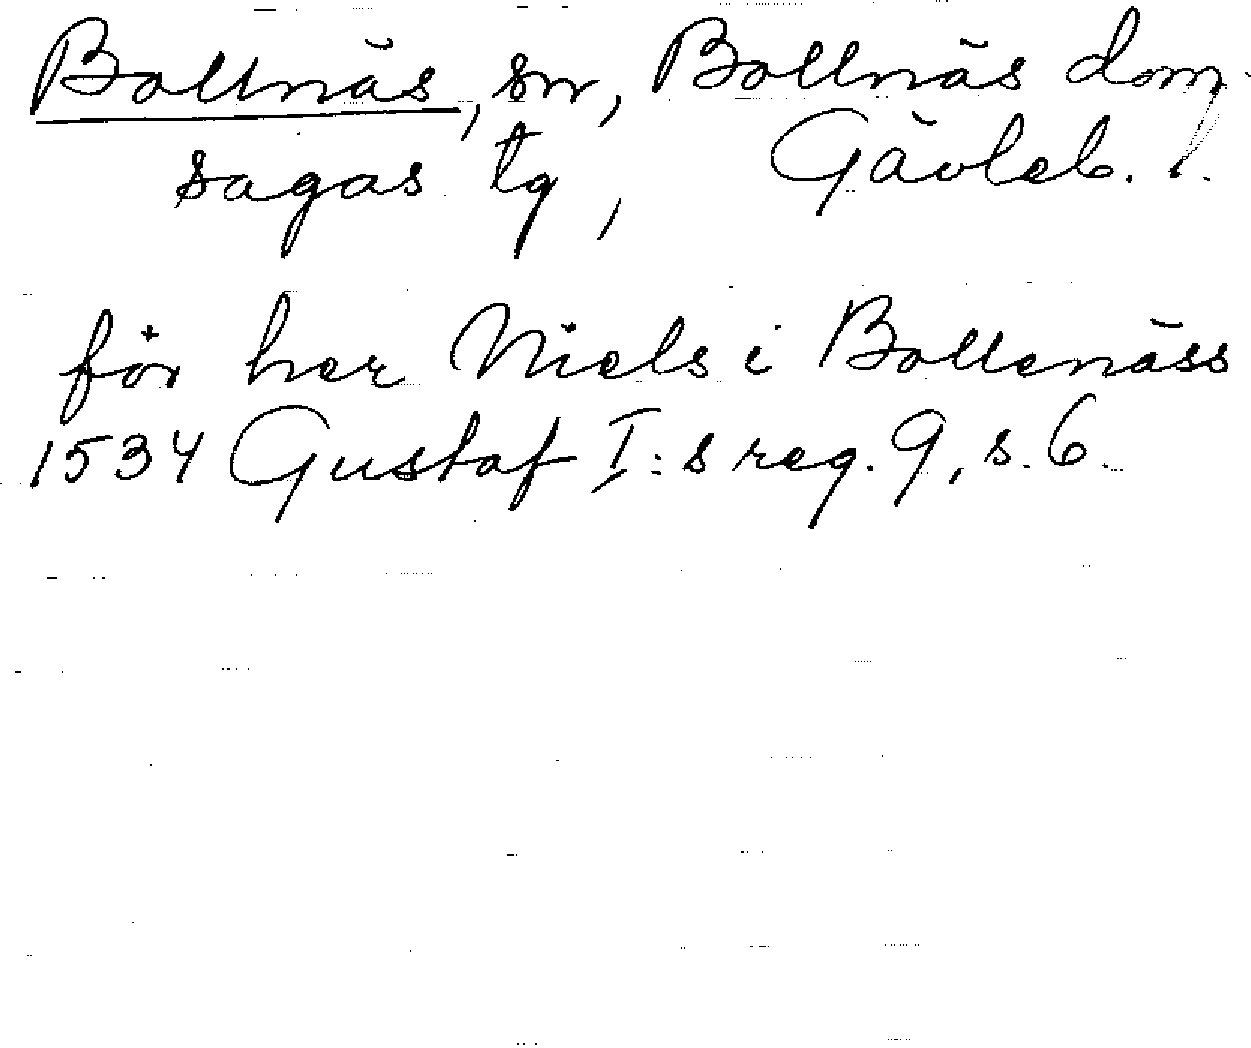 Bollnäs, sn, Bollnäs dom-
sagas tg, Gävleb. l.
för her Niels i Bollenäss
1534 Gustaf I:s reg. 9, s. 6.